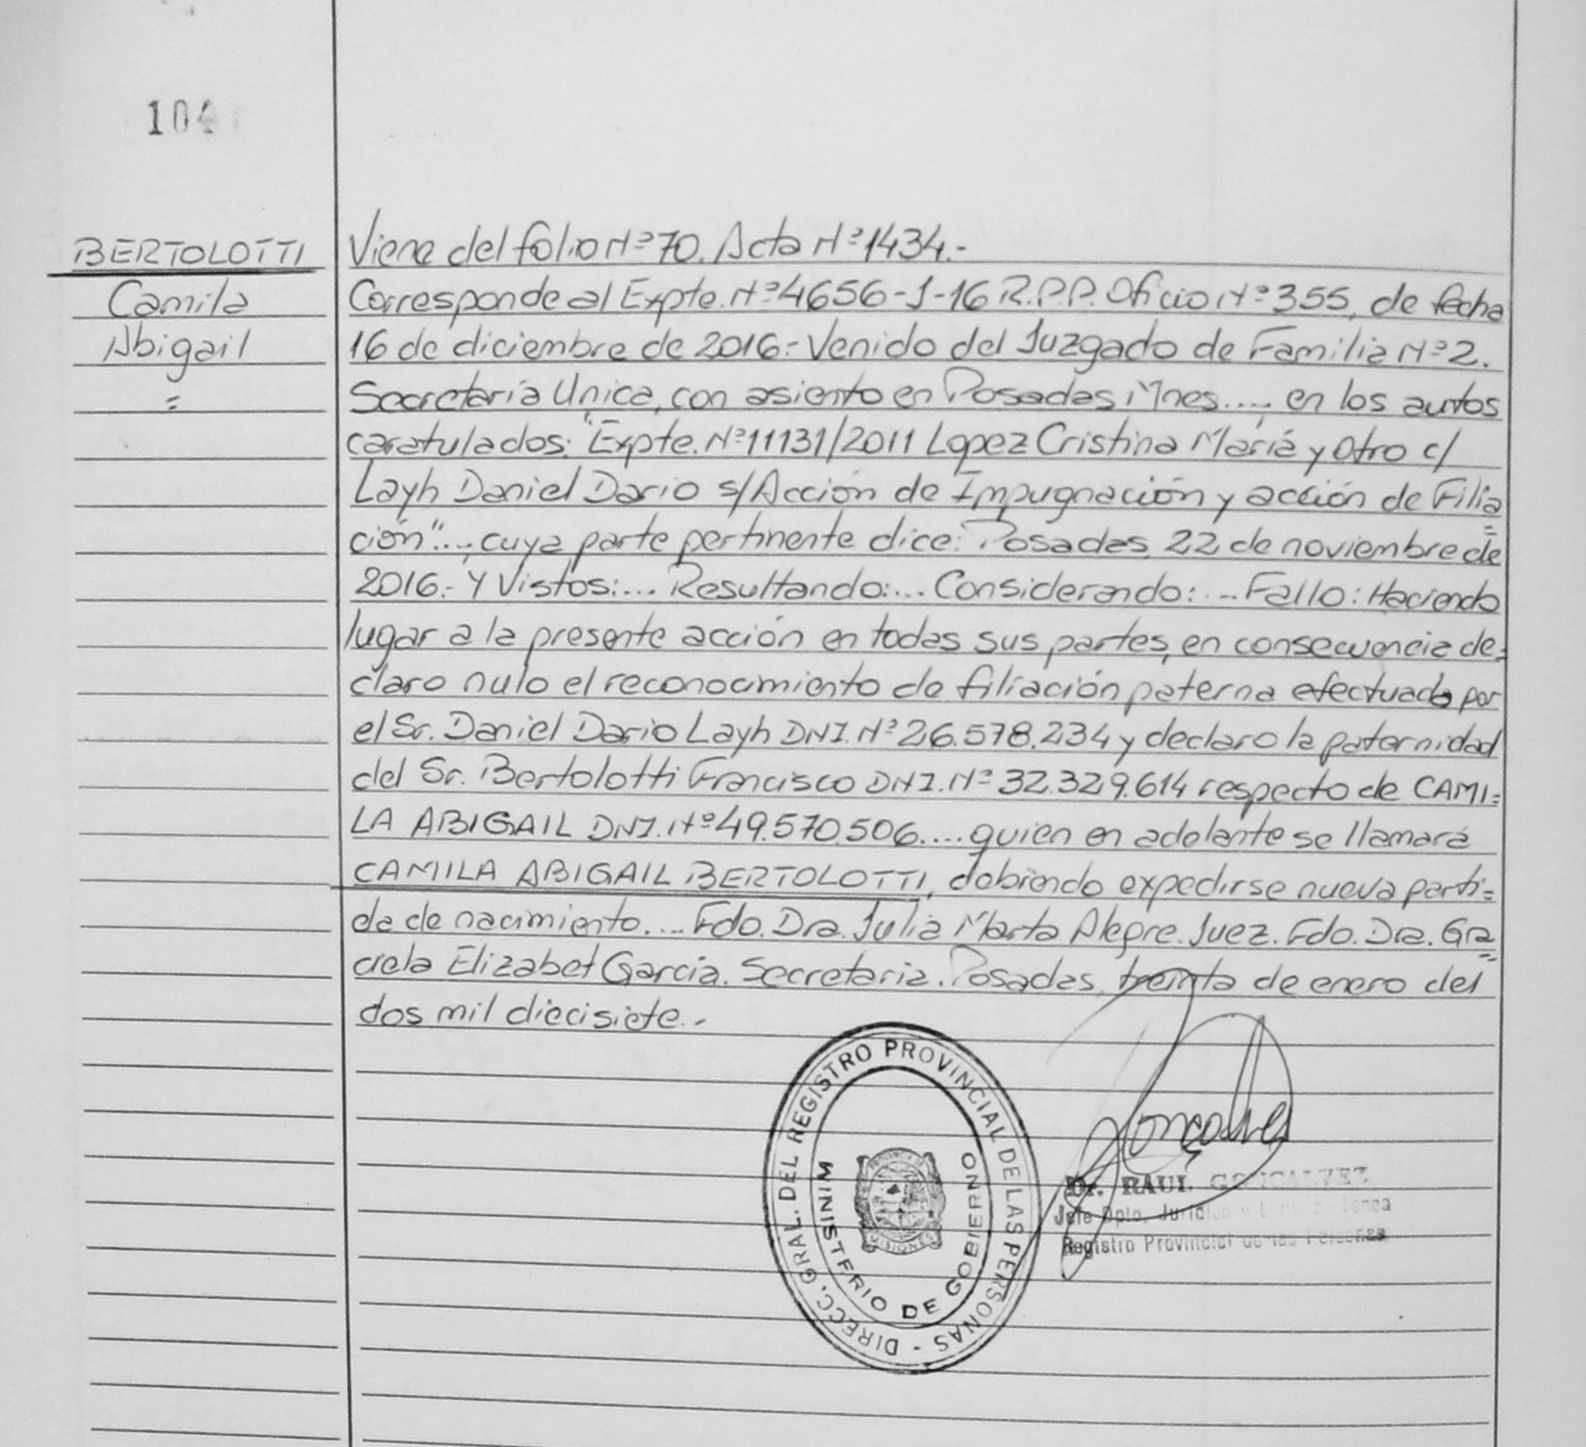 104
BERTOLOTTI
Camila
Abigail
=
Viene del folio Nº 70. Acta Nº 1434.-
Corresponde al Expte. Nº 4656-J-16 R.P.P. Oficio Nº 355, de fecha
16 de diciembre de 2016.- Venido del Juzgado de Familia Nº 2.
Secretaría Unica, con asiento en Posadas Mnes...., en los autos
caratulados: "Expte. Nº 11131/2011 Lopez Cristina Mariá y Otro c/
Layh Daniel Dario s/Acción de Impugnación y acción de Filia=
ción"..., cuya parte pertinente dice: Posadas, 22 de noviembre de
2016.- Y Vistos:... Resultando:... Considerando:... Fallo: Haciendo
lugar a la presente acción en todas sus partes, en consecuencia de=
claro nulo el reconocimiento de filiación paterna efectuado por
el Sr. Daniel Dario Layh DNI. Nº 26.578.234 y declaro la paternidad
del Sr. Bertolotti Francisco DNI. Nº 32.329.614 respecto de CAMI=
LA ABIGAIL DNI. Nº 49.570.506.... quien en adelante se llamará
CAMILA ABIGAIL BERTOLOTTI, debiendo expedirse nueva parti=
da de nacimiento.... Fdo. Dra. Julia Marta Alegre. Juez. Fdo. Dra. Gra=
ciela Elizabet García. Secretaria. Posadas, treinta de enero del
dos mil diecisiete.-
DIRECC. GRAL. DEL REGISTRO PROVINCIAL DE LAS PERSONAS -
MINISTERIO DE GOBIERNO
MISIONES
Dr. RAUL GONCALVEZ
Jefe Dpto. Jurídico
Registro Provincial de las Personas